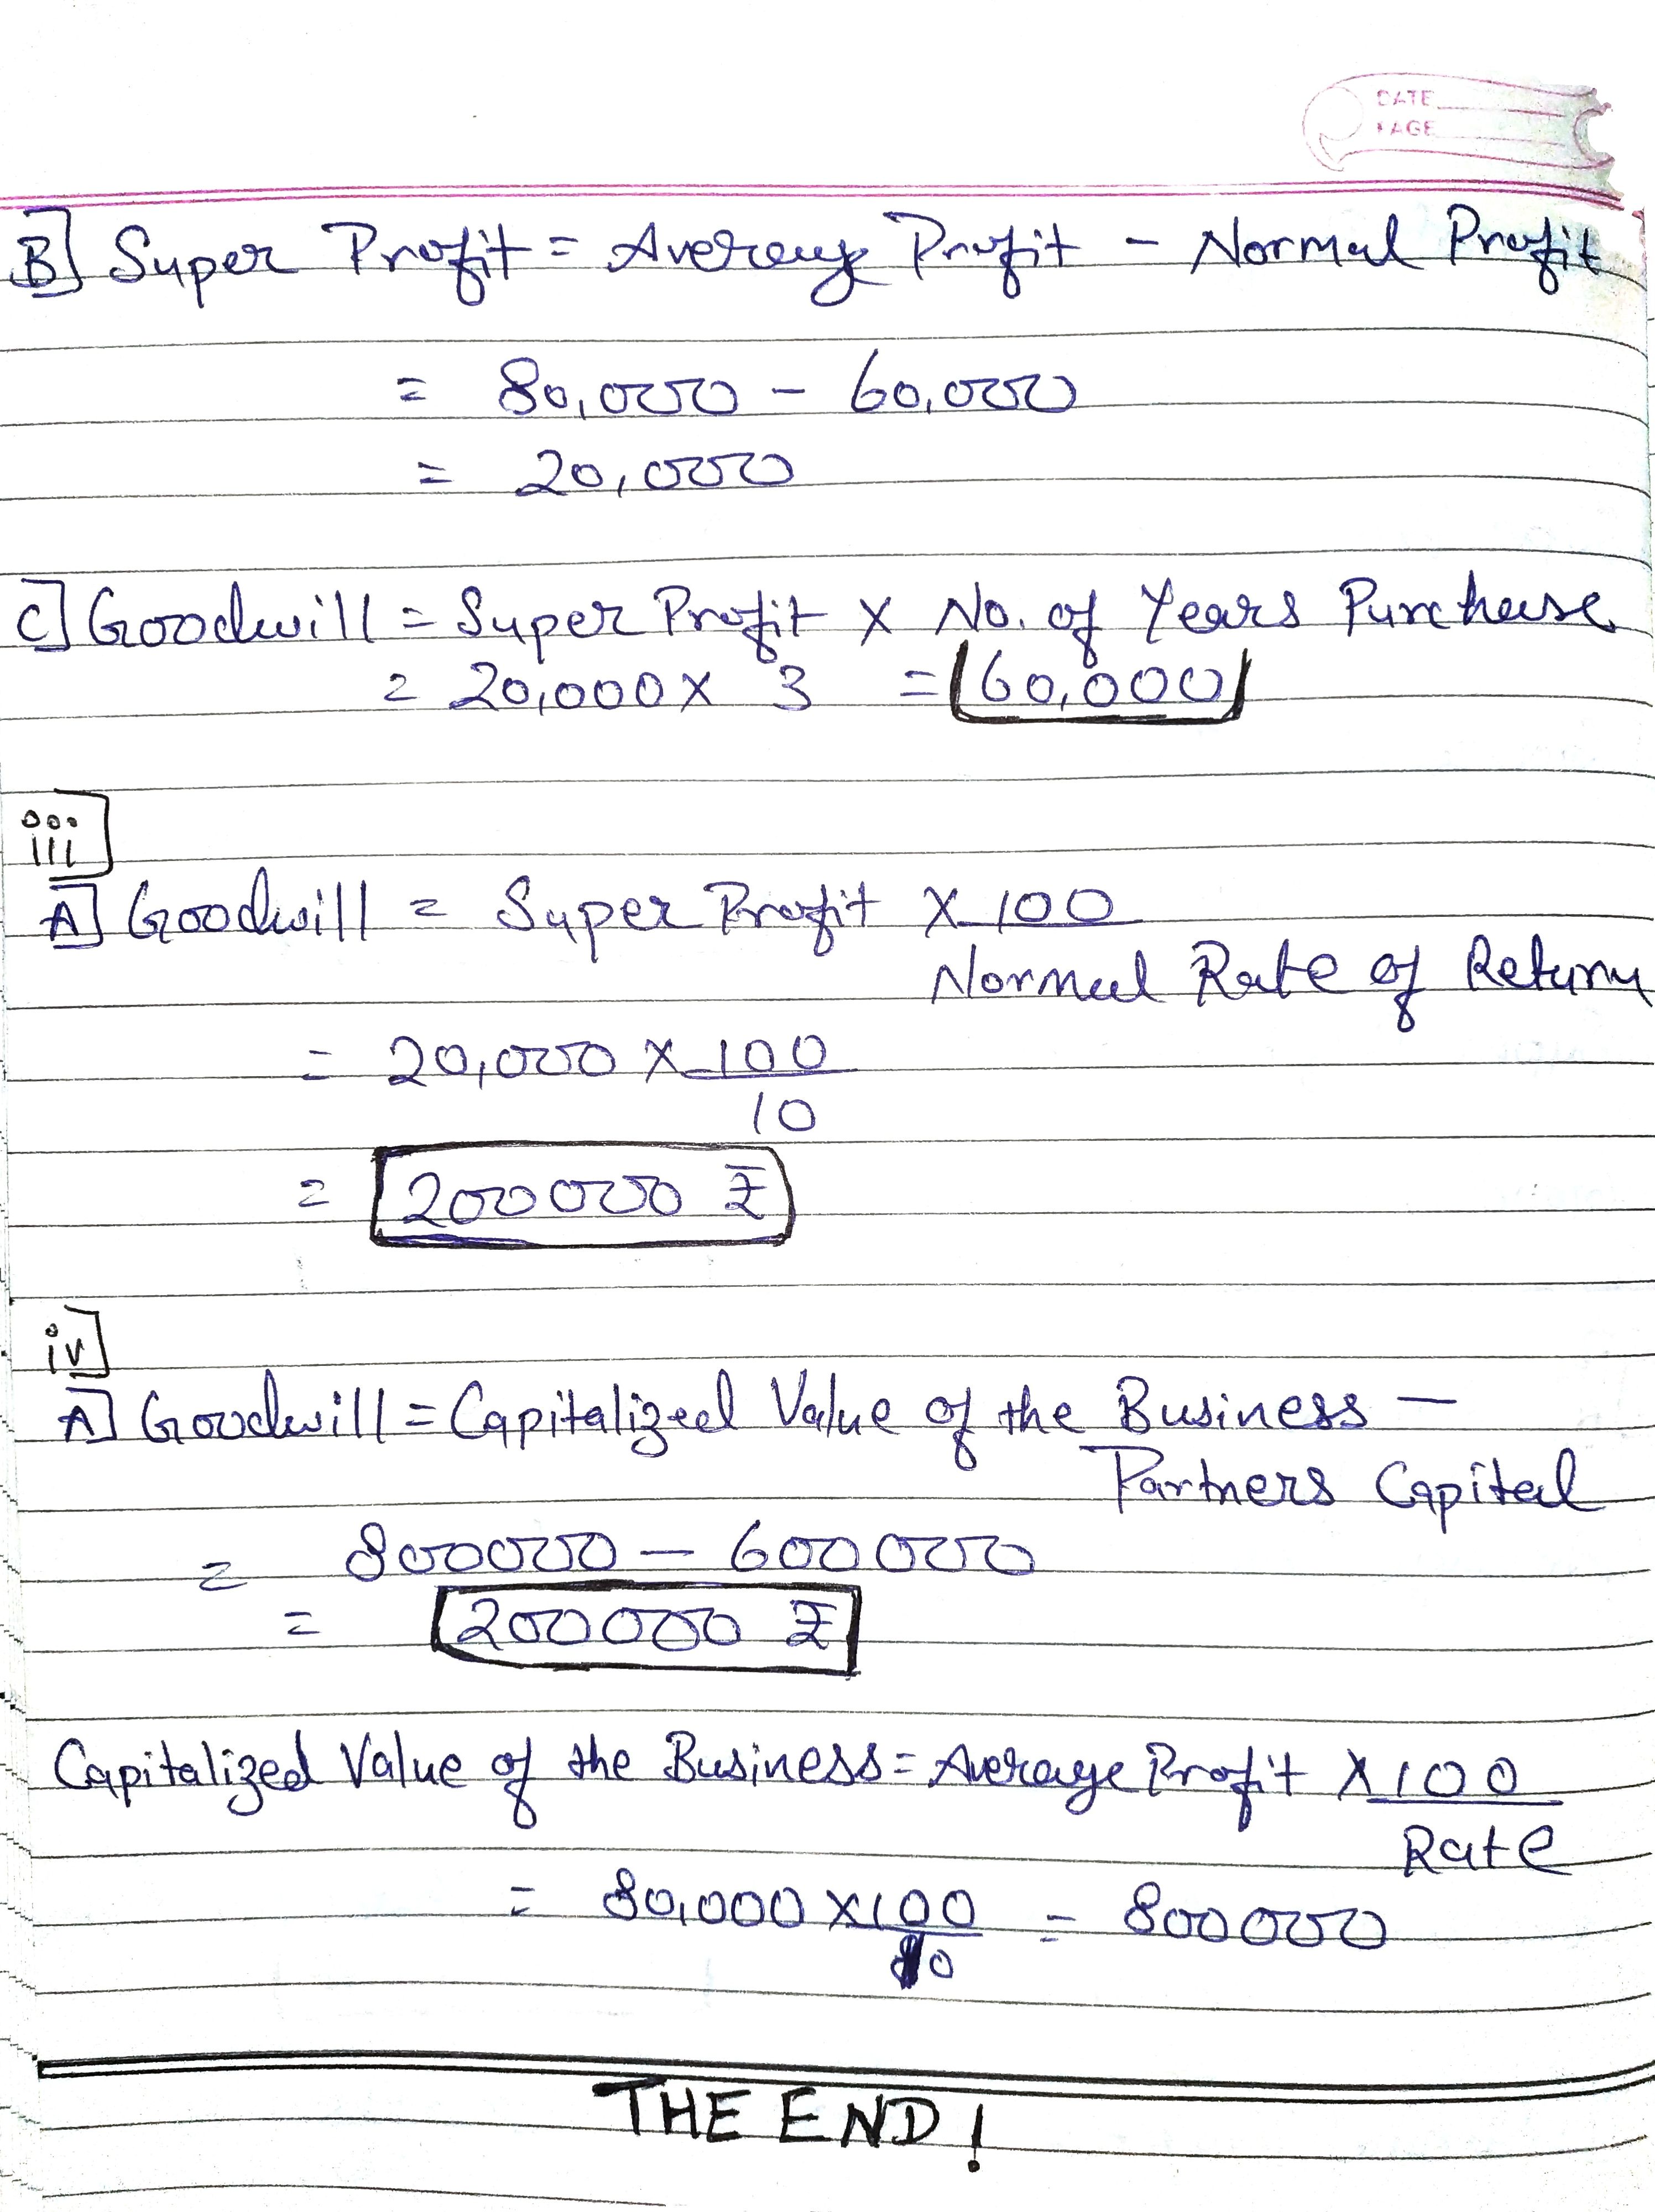 DATE
PAGE
B] Super Profit = Average Profit - Normal Profit
= 80,000 - 60,000
= 20,000
C] Goodwill = Super Profit X No. of Years Purchase
= 20,000 X 3 = 60,000
iii]
A] Goodwill = Super Profit X 100
Normal Rate of Return
= 20,000 X 100
10
= 200000 ₹
iv]
A] Goodwill = Capitalized Value of the Business -
Partners Capital
= 800000 - 600000
= 200000 ₹
Capitalized Value of the Business = Average Profit X 100
Rate
= 80,000 X 100 = 800000
10
THE END!